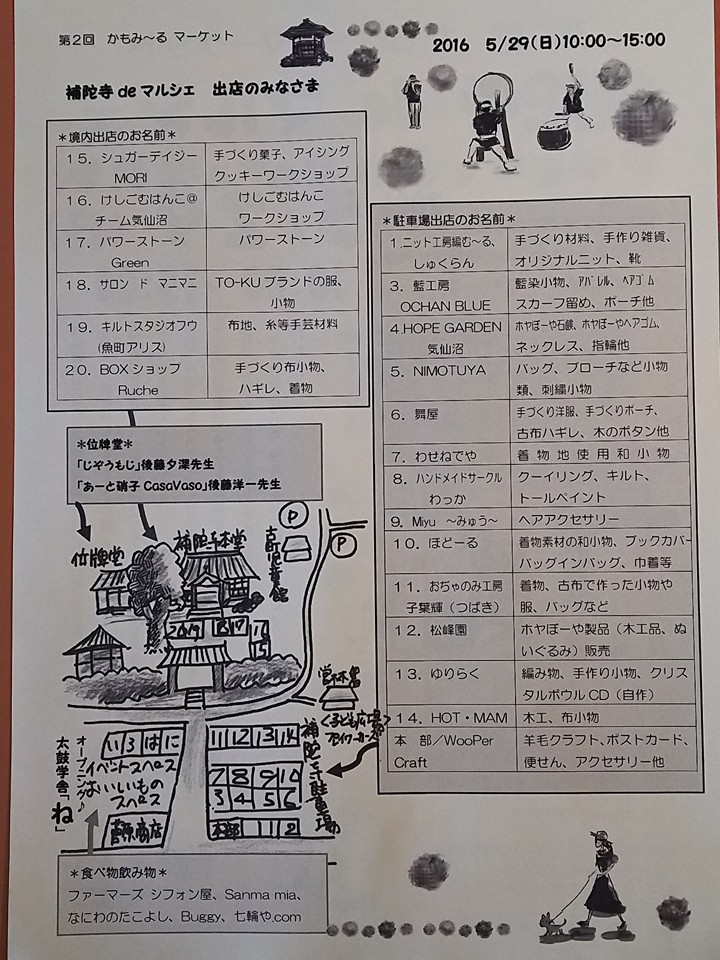 第2回 かもみ～る マーケット
2016 5/29(日)10:00～15:00
補陀寺 de マルシェ 出店のみなさま
＊境内出店のお名前＊
15．シュガーデイジー 手づくり菓子、アイシング
MORI クッキーワークショップ
16．けしごむはんこ@ けしごむはんこ
チーム気仙沼 ワークショップ
17．パワーストーン パワーストーン
Green
18．サロン ド マニマニ TO-KUブランドの服、
小物
19．キルトスタジオフウ 布地、糸等手芸材料
(魚町アリス)
20．BOXショップ 手づくり布小物、
Ruche ハギレ、着物
＊駐車場出店のお名前＊
1.ニット工房編む～る、 手づくり材料、手作り雑貨、
しゅくらん オリジナルニット、靴
3．藍工房 藍染小物、アパレル、ヘアゴム
OCHAN BLUE スカーフ留め、ポーチ他
4.HOPE GARDEN ホヤぼーや石鹸、ホヤぼーやヘアゴム、
気仙沼 ネックレス、指輪他
5．NIMOTUYA バッグ、ブローチなど小物
類、刺繍小物
6．舞屋 手づくり洋服、手づくりポーチ、
古布ハギレ、木のボタン他
7．わせねでや 着物地使用和小物
8．ハンドメイドサークル クーイリング、キルト、
わっか トールペイント
9．Miyu ～みゅう～ ヘアアクセサリー
10．ほどーる 着物素材の和小物、ブックカバー
バッグインバッグ、巾着等
11．おぢゃのみ工房 着物、古布で作った小物や
子葉輝（つばき） 服、バッグなど
12．松峰園 ホヤぼーや製品（木工品、ぬ
いぐるみ）販売
13．ゆりらく 編み物、手作り小物、クリス
タルボウルCD（自作）
14．HOT・MAM 木工、布小物
本 部／WooPer 羊毛クラフト、ポストカード、
Craft 便せん、アクセサリー他
＊位牌堂＊
「じぞうもじ」後藤夕深先生
「あーと硝子 CasaVaso」後藤洋一先生
P
P
位牌堂
補陀寺本堂
古町児童館
20 19 18 17 16
15
＜子ども広場
プレイワーカーズ＞
補陀寺駐車場
いろはに
イベントスペース
おいしいもの
スペース
菅原商店
オープニング♪
太鼓学舎「ね」
11 12 13 14
7 8 9 10
3 4 5 6
本部 1 2
＊食べ物飲み物＊
ファーマーズ シフォン屋、Sanma mia、
なにわのたこよし、Buggy、七輪や.com